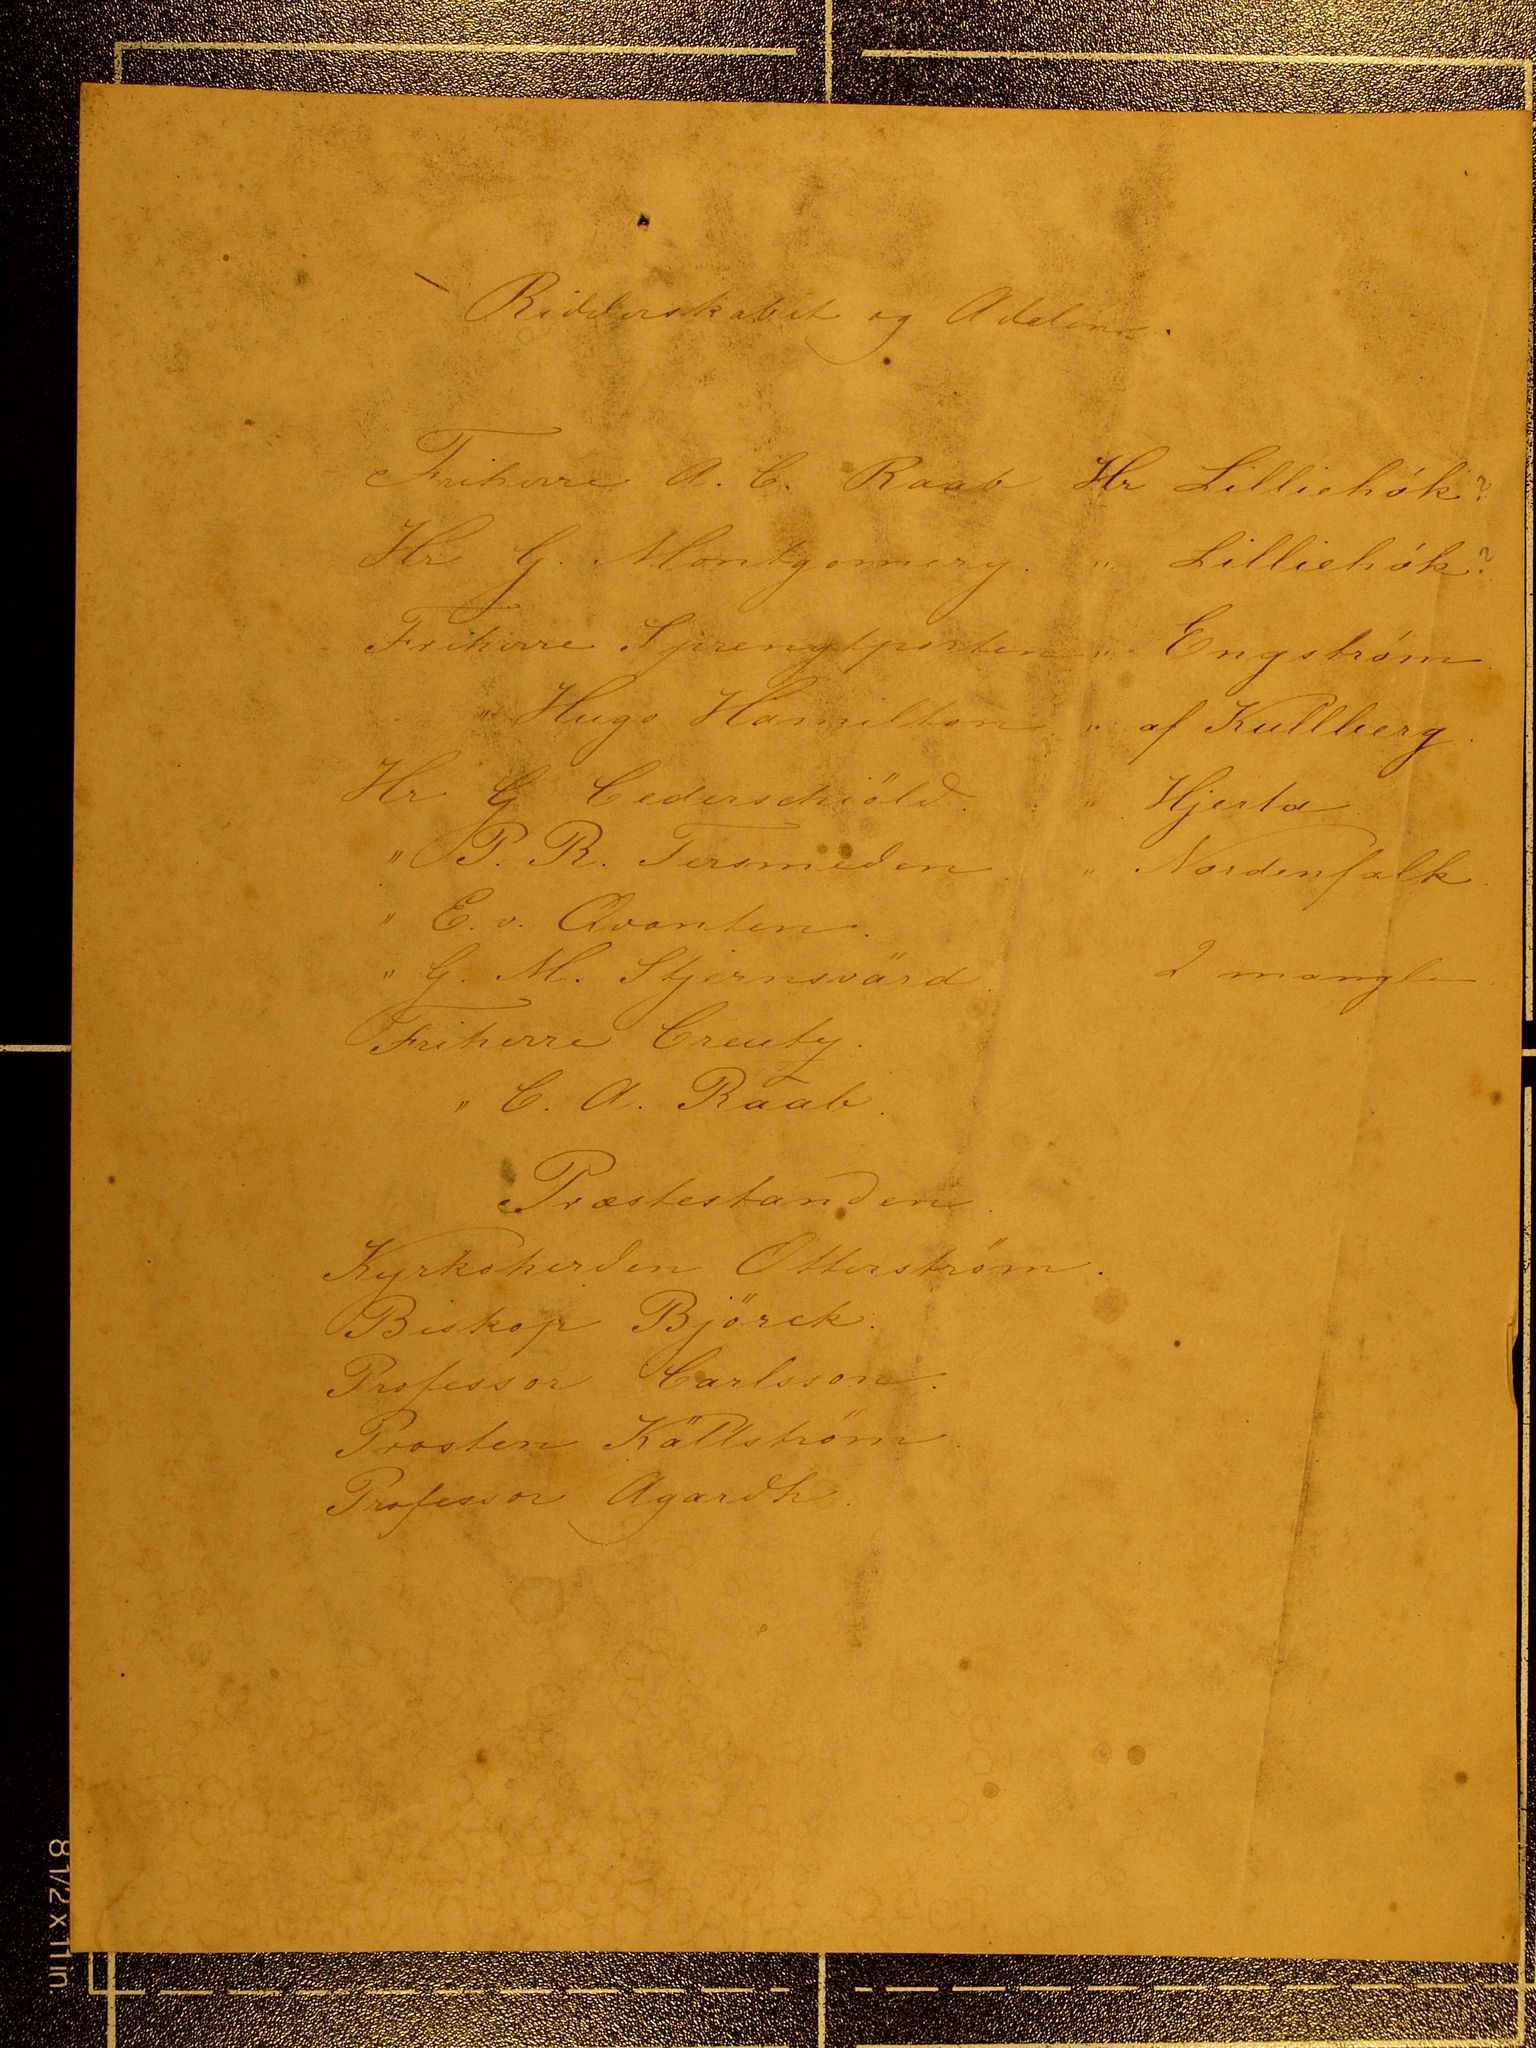 Ridderskabet og Adelen.
Friherre A. C. Raab Hr Lilliehök?
Hr G. Montgomery. " Lilliehök?
Friherre Sprengtporten " Engström
" Hugo Hamilton " af Kullberg.
Hr G Cederschiöld. " Hjerta
" P. R. Tersmeden. " Nordenfalk.
" E. v. Qvanten.
" G. M. Stjernsvärd. 2 mangler.
Friherre Creutz.
" C. A. Raab.
Præstestanden.
Kyrkoherden Otterström.
Biskop Björck.
Professor Carlsson.
Prosten Källström.
Professor Agardh.
8 1/2 x 11 in.